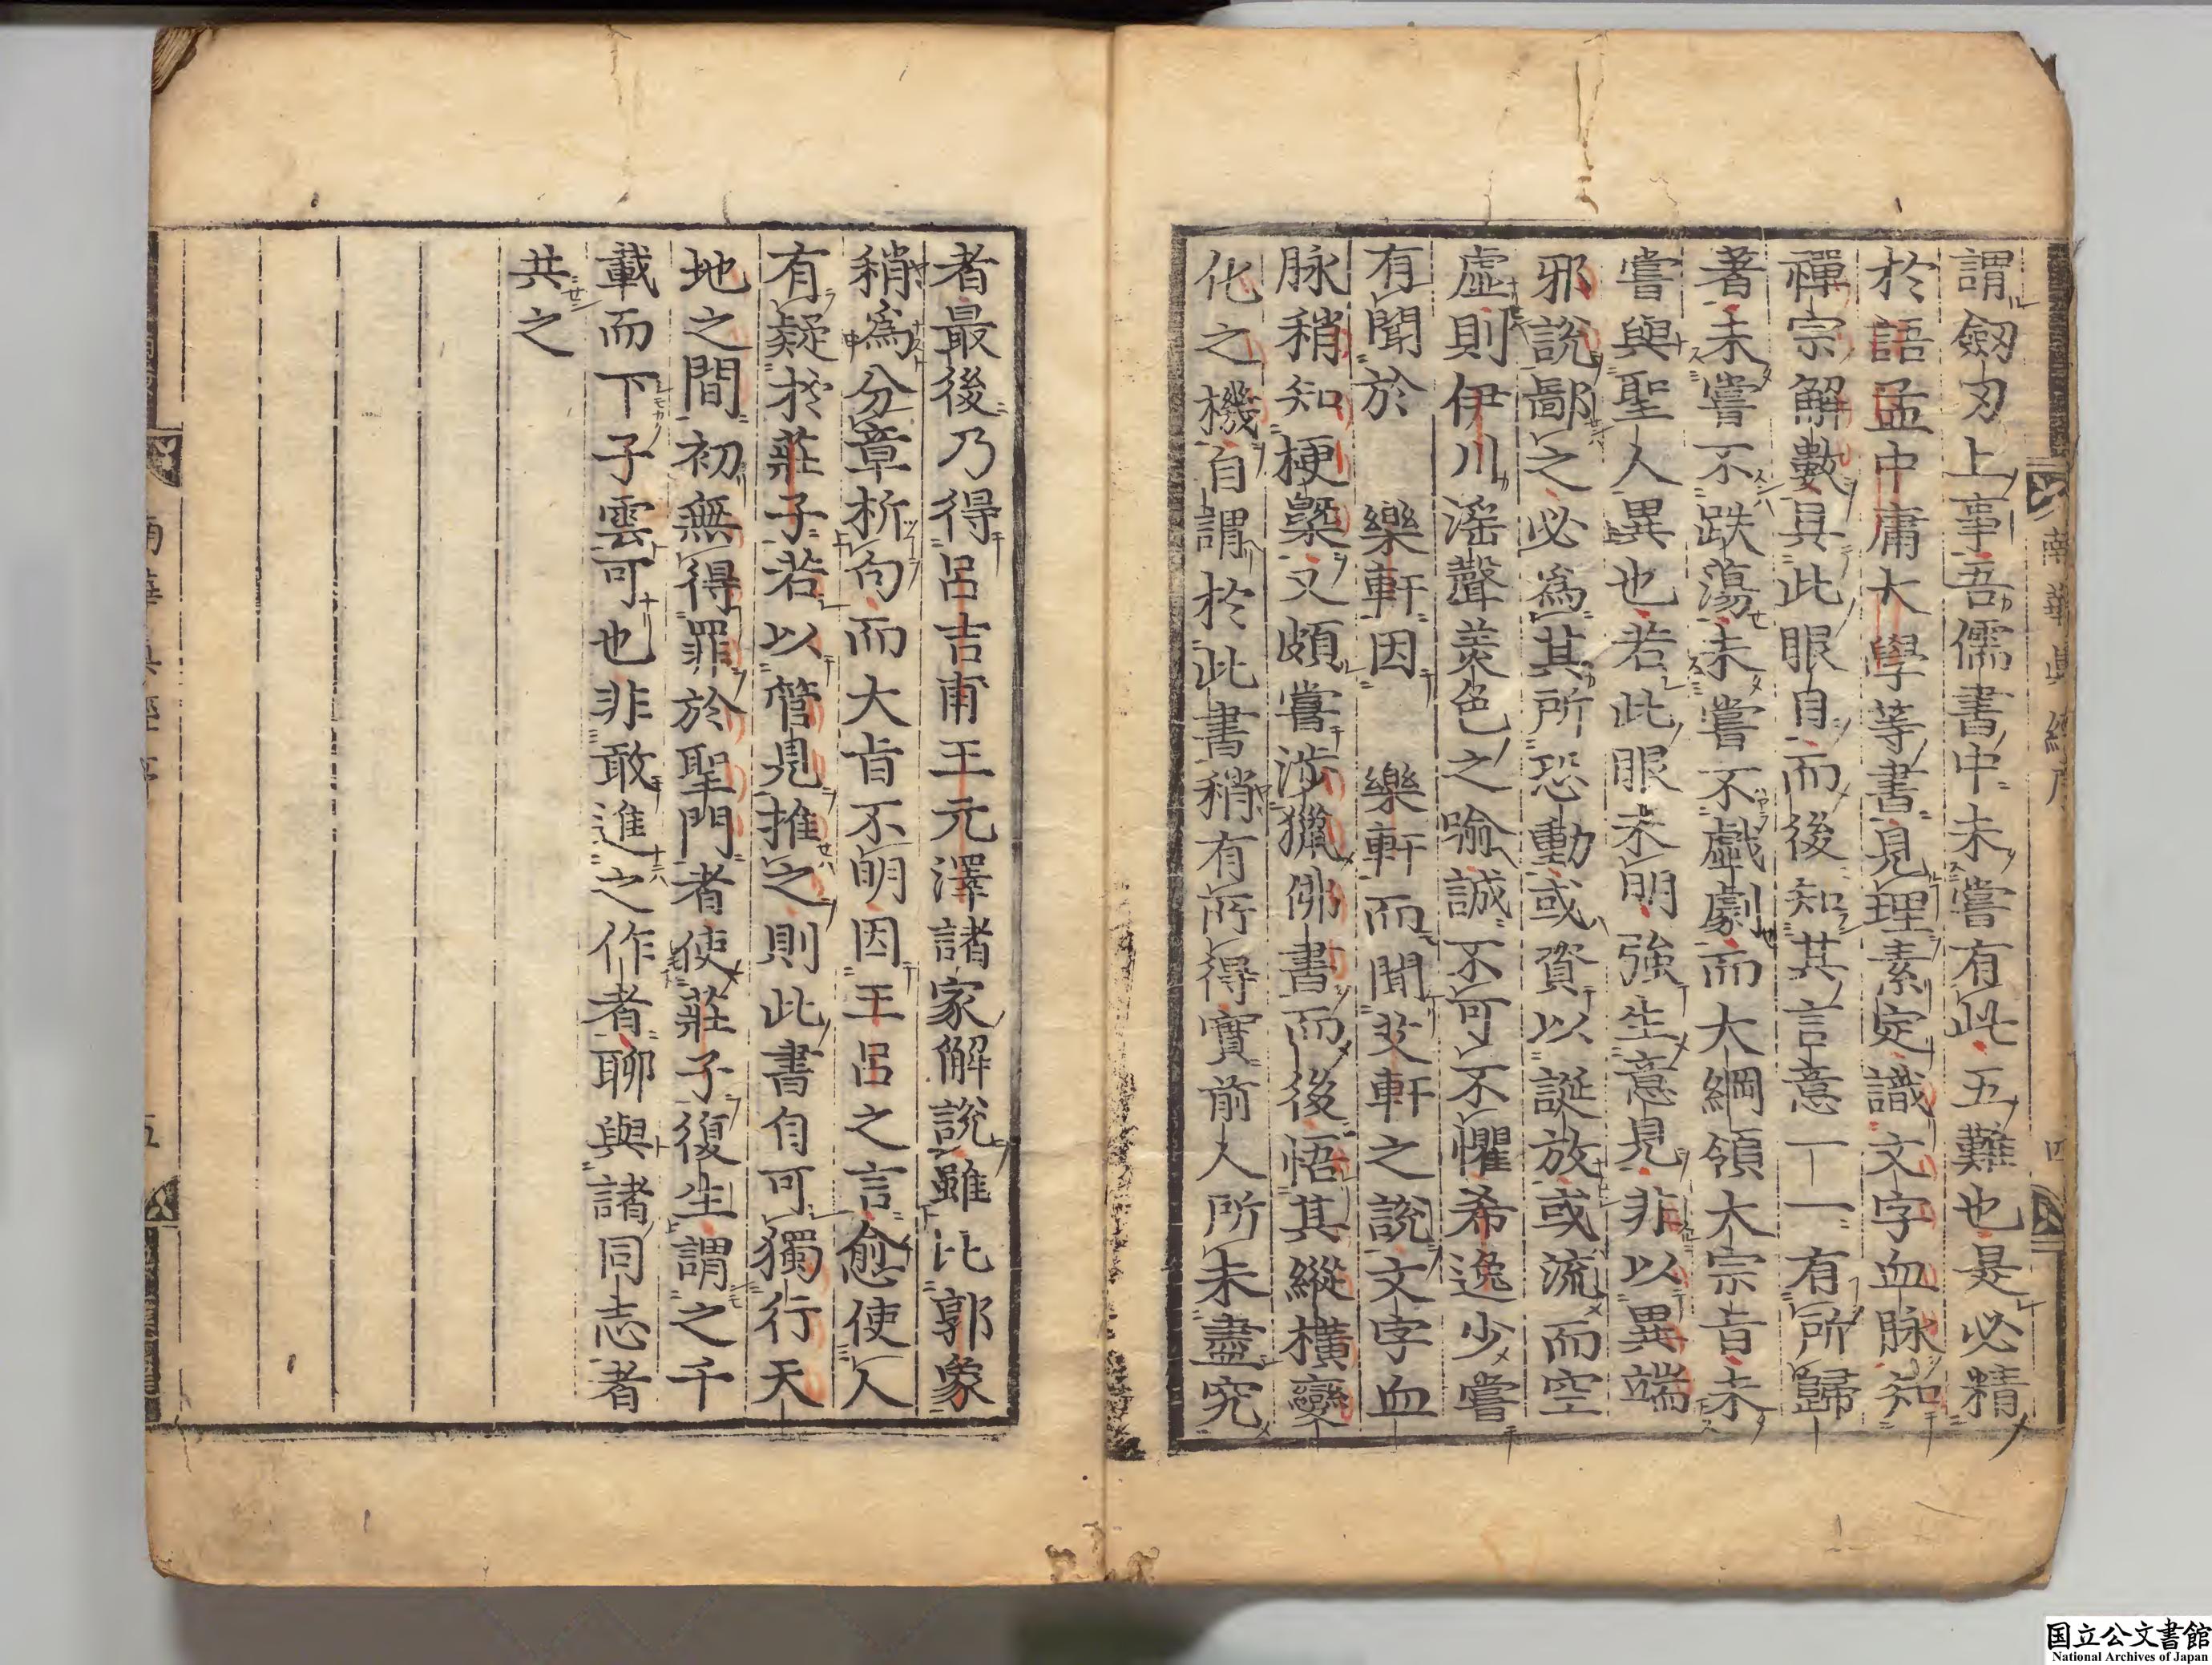 謂劔刃上事吾儒書中未嘗有此五難也是必精
於語孟中庸大學等書見理素定識文字血脉知
禪宗解數具此眼目而後知其言意一一有所歸
著未嘗不跌蕩未嘗不戯劇而大綱領大宗旨未
嘗與聖人異也若此眼未明強生意見非以異端
邪說鄙之必為其所恐動或資以誕放或流而空
虛則伊川滛聲羙色之喻誠不可不懼希逸少嘗
有聞於 樂軒因 樂軒而聞艾軒之說文字血
脉稍知梗槩又頗嘗涉獵佛書而後悟其縱橫變
化之機自謂於此書稍有所得實前人所未盡究
南華眞經序 四
者最後乃得呂吉甫王元澤諸家解說雖比郭象
稍為分章析句而大旨不明因王呂之言愈使人
有疑於莊子若以管見推之則此書自可獨行天
地之間初無得罪於聖門者使莊子復生謂之千
載而下子雲可也非敢進之作者聊與諸同志者
共之
国立公文書館
National Archives of Japan